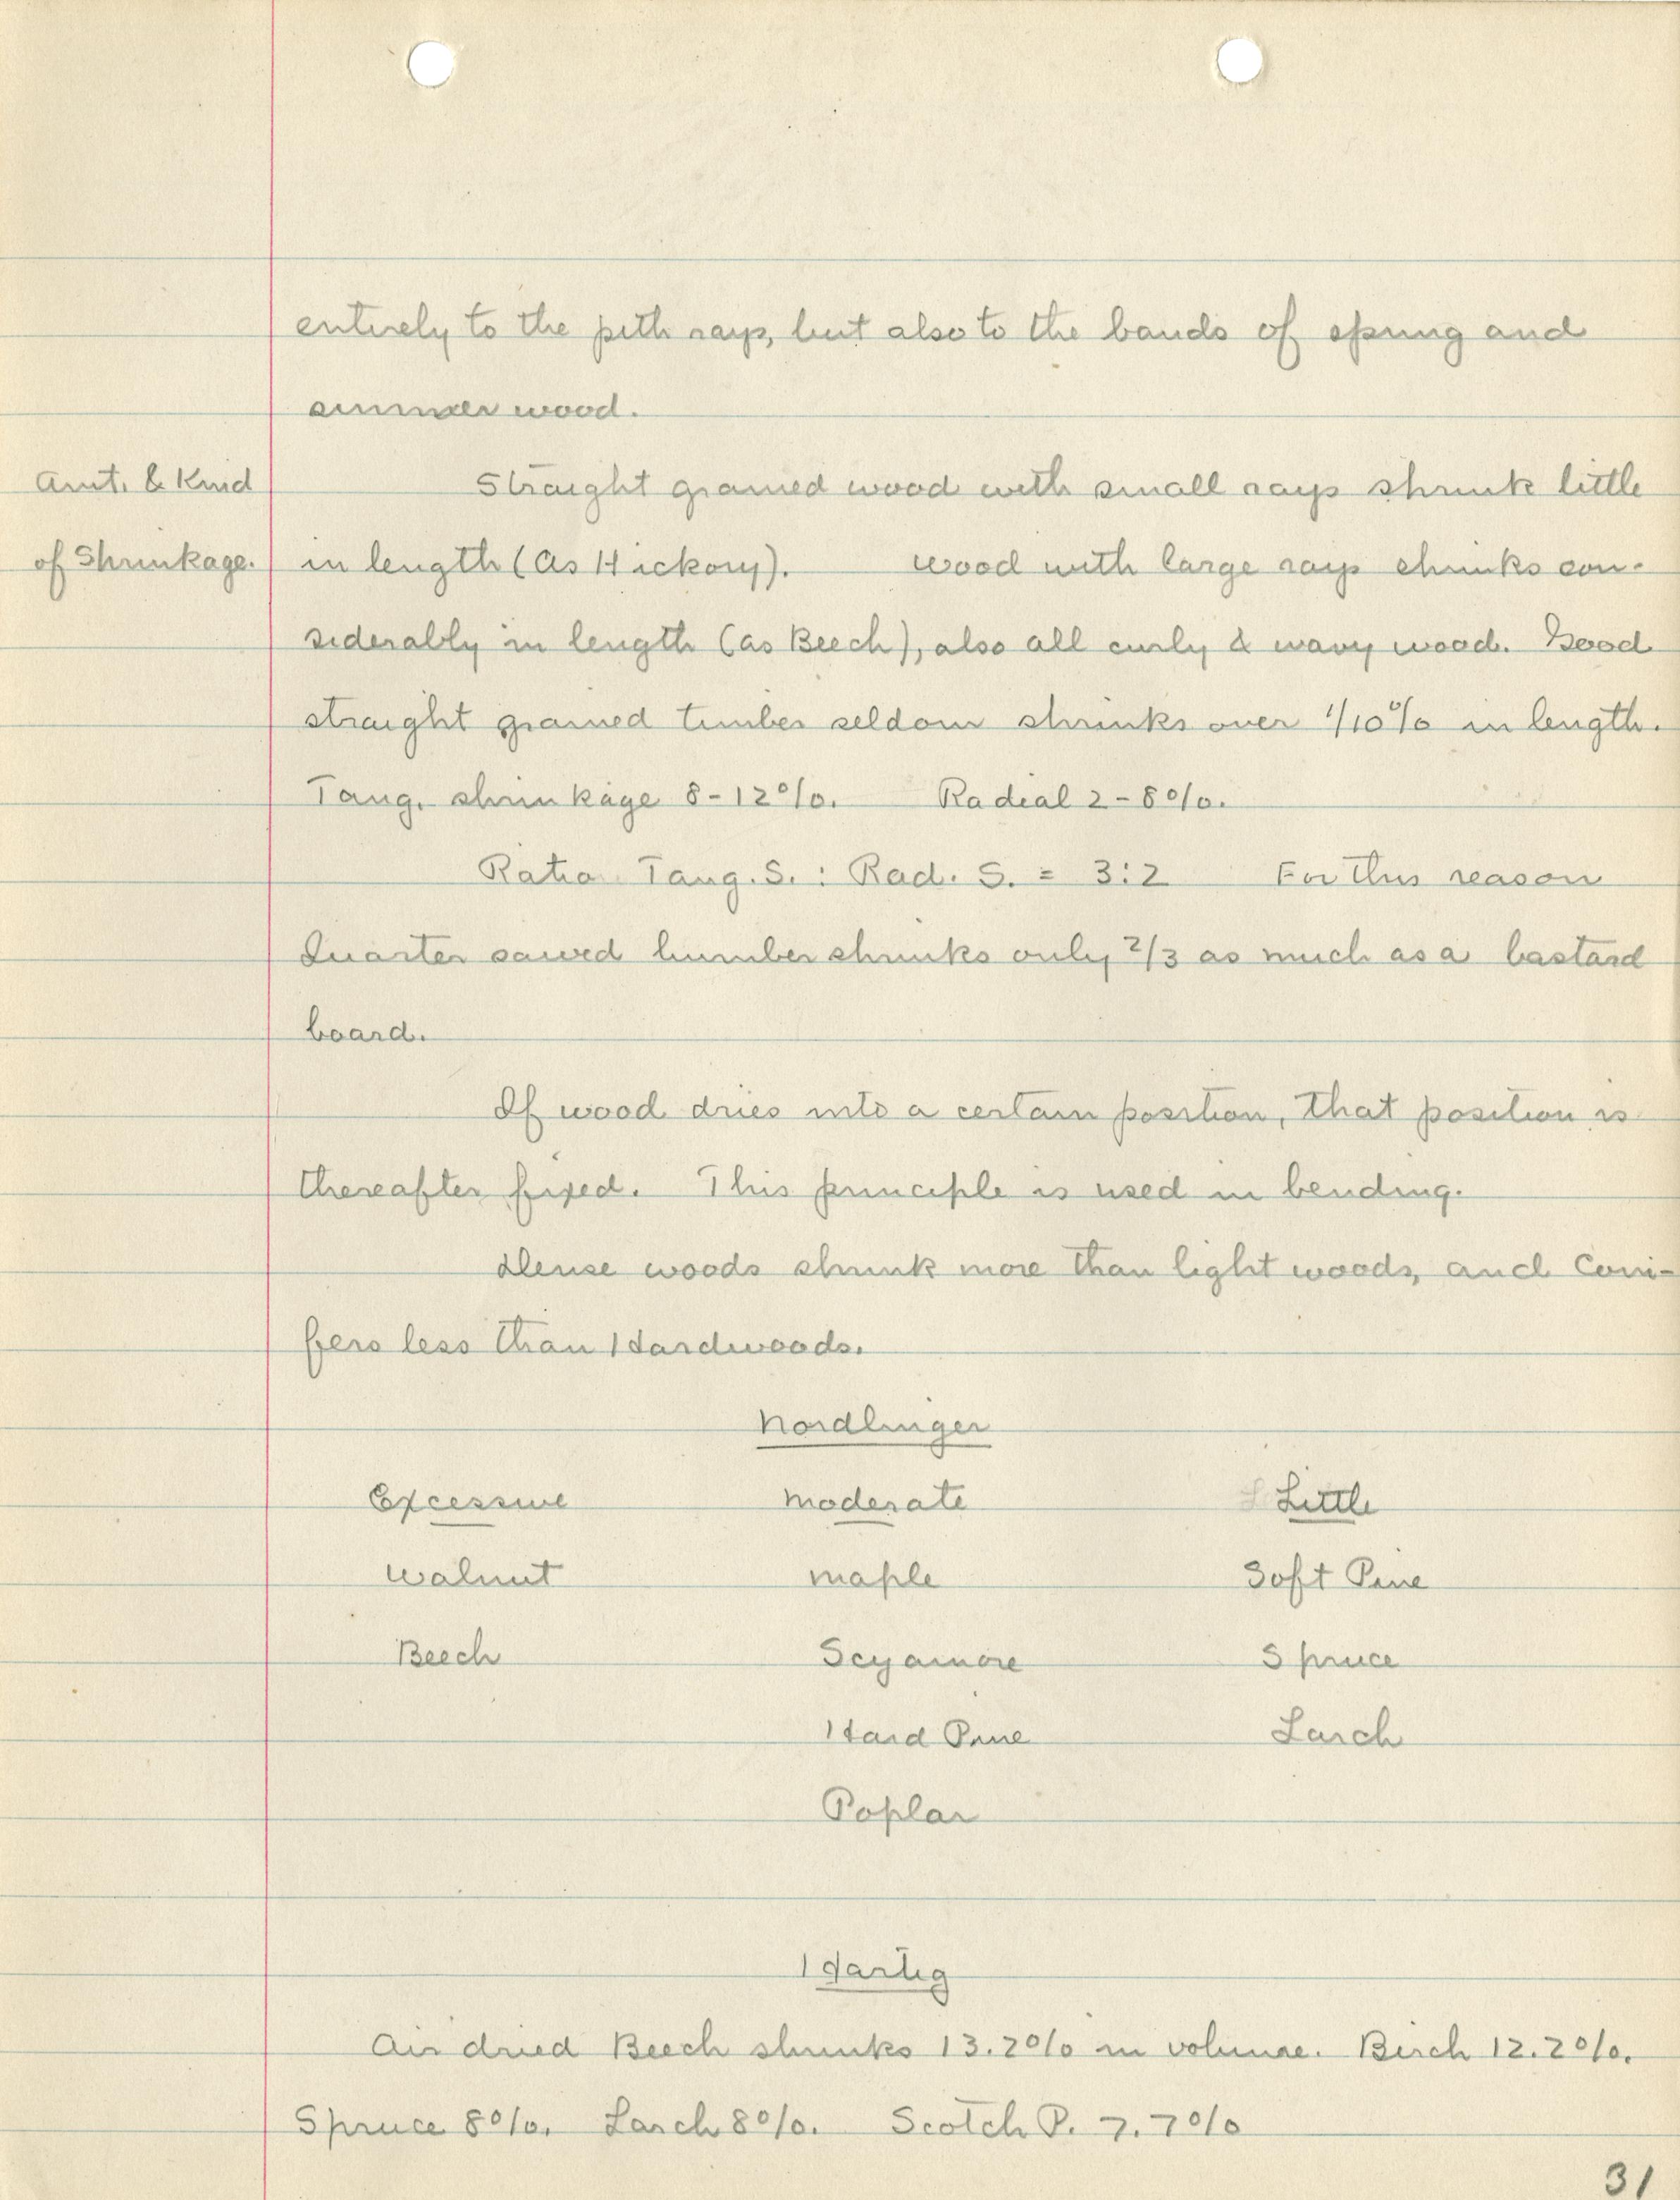 entirely to the pith rays, but also to the bands of spring and
summer wood.
Amt. & Kind
of Shrinkage.
Straight grained wood with small rays shrink little
in length (as Hickory). Wood with large rays shrinks con-
siderably in length (as Beech), also all curly & wavy wood. Good
straight grained timber seldom shrinks over 1/10% in length.
Tang. shrinkage 8-12%. Radial 2-8%.
Ratio Tang. S. : Rad. S. = 3:2 For this reason
Quarter sawed lumber shrinks only 2/3 as much as a bastard
board.
If wood dries into a certain position, that position is
thereafter fixed. This principle is used in bending.
Dense woods shrink more than light woods, and Coni-
fers less than Hardwoods.
Nordlinger
Excessive Moderate Little
Walnut Maple Soft Pine
Beech Scyamore Spruce
Hard Pine Larch
Poplar
Hartig
Air dried Beech shrinks 13.2% in volume. Birch 12.2%.
Spruce 8%. Larch 8%. Scotch P. 7.7%
31